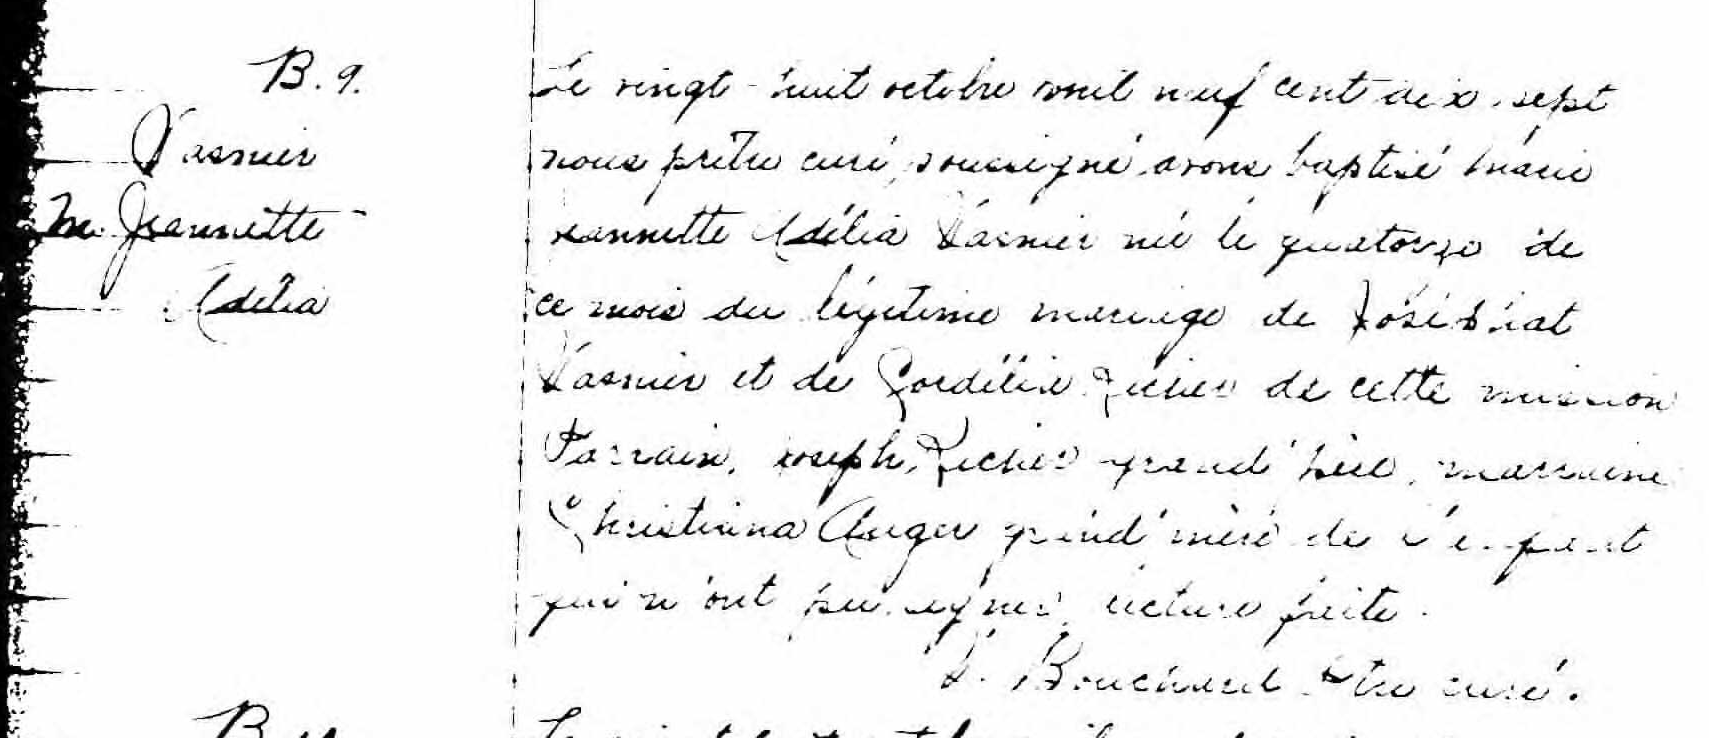 B. 9.
Vasnier
M. Jeannette
Adélia
Le vingt-huit octobre mil neuf cent dix-sept
nous prêtre curé, soussigné avons baptisé Marie
Jeannette Adélia Vasnier née le quatorze de
ce mois du légitime mariage de Joséphat
Vasnier et de Cordélia Richer de cette mission
Parrain, Joseph Richer grand'père, marraine
Christiana Auger grand'mère de l'enfant
qui n'ont pu signer, lecture faite.
Bouchard Ptre curé.